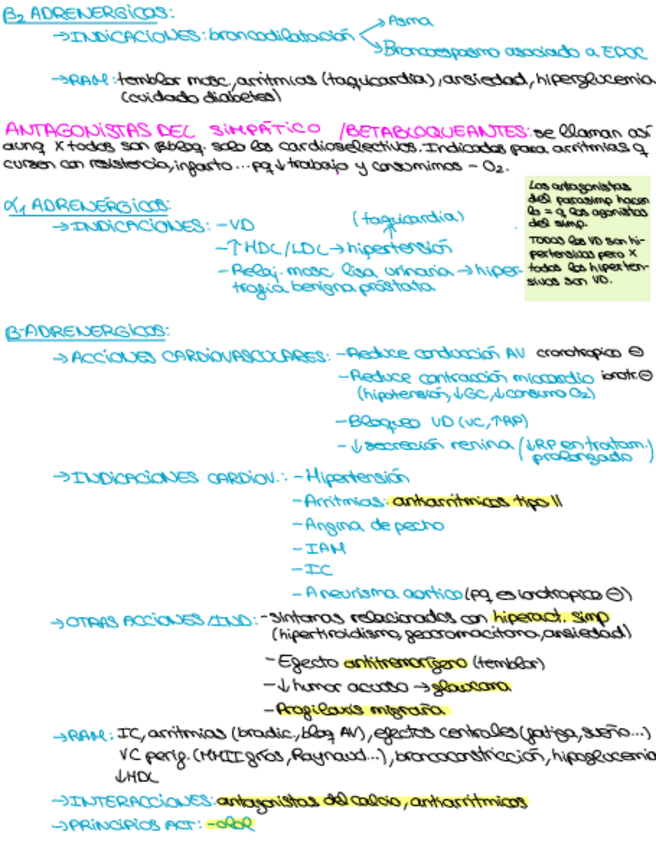 β₂ ADRENERGICOS:
→INDICACIONES: broncodilatación → Asma
→ Broncoespasmo asociado a EPOC
→RAM: temblor musc, arritmias (taquicardia), ansiedad, hiperglucemia
(cuidado diabetes)
ANTAGONISTAS DEL SIMPÁTICO / BETABLOQUEANTES: se llaman así
aunq X todos son βbloq. solo los cardioselectivos. Indicados para arritmias q
cursen con resistencia, infarto... pq ↓ trabajo y consumimos - O₂.
α₁ ADRENÉRGICOS:
→INDICACIONES: -VD (taquicardia)
-↑HDL/LDL → hipertensión
-Relaj. musc lisa urinaria → hiper-
trofia benigna próstata
Los antagonistas
del parasimp hacen
lo = q los agonistas
del simp.
TODOS los VD son hi-
pertensivos pero X
todos los hiperten-
sivos son VD.
β-ADRENÉRGICOS:
→ACCIONES CARDIOVASCULARES: -Reduce conducción AV cronotropico ⊖
-Reduce contracción miocardio ionotr.⊖
(hipotensión, ↓GC, ↓consumo O₂)
-Bloqueo VD (VC, ↑RP)
-↓secreción renina (↓RP en tratam.
prolongado)
→INDICACIONES CARDIOV.: -Hipertensión
-Arritmias: antiarritmicos tipo II
-Angina de pecho
-IAM
-IC
-Aneurisma aortico (pq es ionotropico ⊖)
→OTRAS ACCIONES/IND: -síntomas relacionados con hiperact. simp
(hipertiroidismo, feocromocitoma, ansiedad)
-Efecto antitremorígeno (temblor)
-↓humor acuoso → glaucoma
-Profilaxis migraña
→RAM: IC, arritmias (bradic, bloq AV), efectos centrales (fatiga, sueño...)
VC perif. (MMII fríos, Raynaud...), broncoconstricción, hipoglucemia
↓HDL
→INTERACCIONES: antagonistas del calcio, antiarritmicos
→PRINCIPIOS ACT: -olol